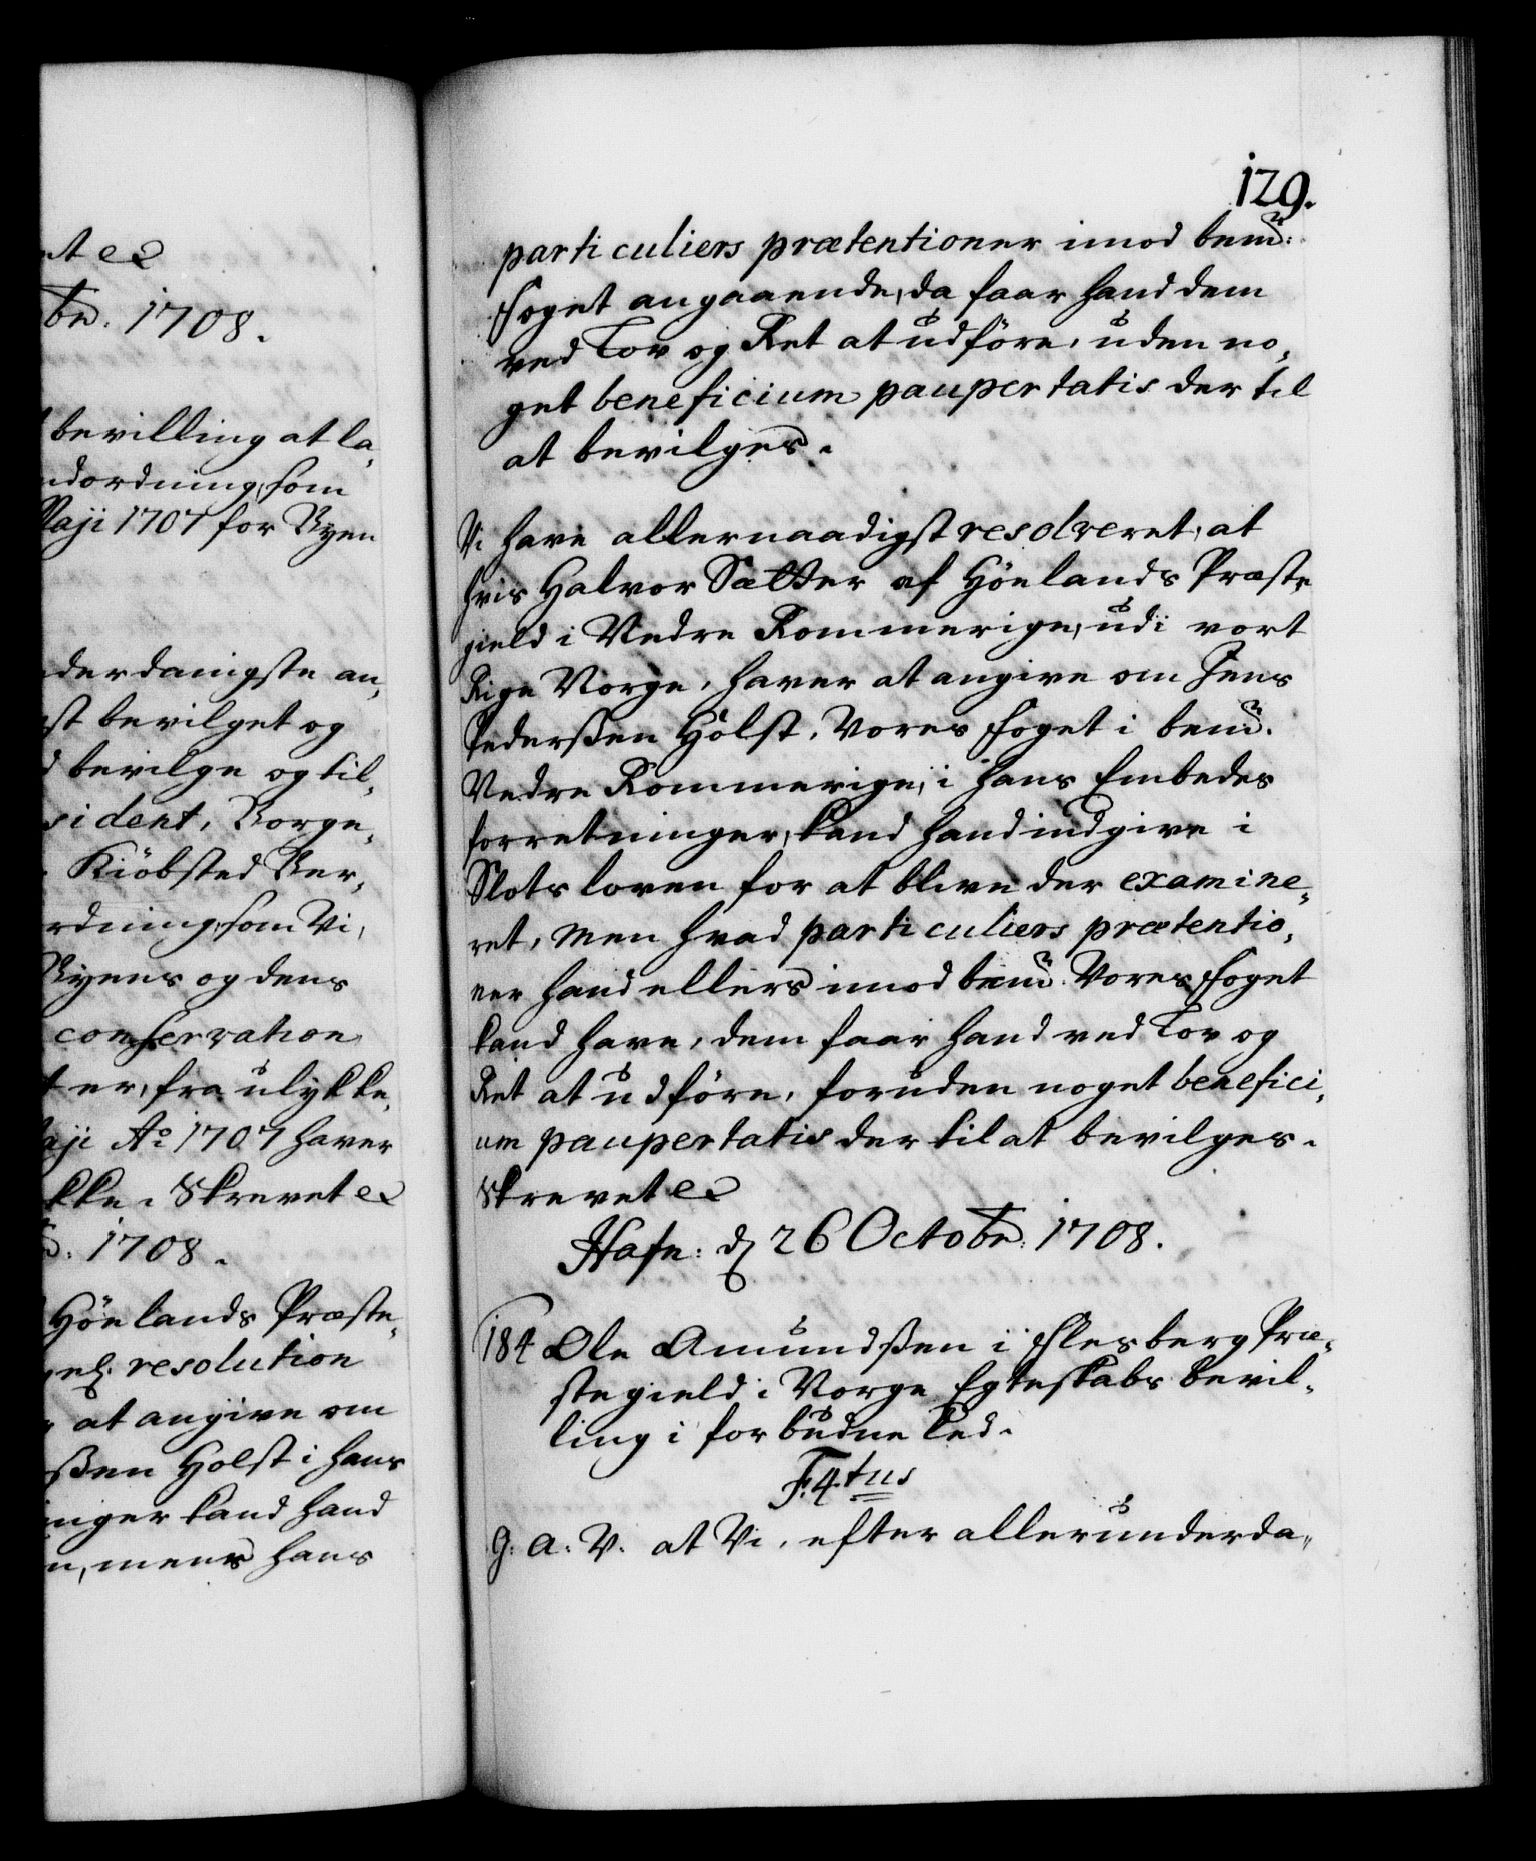 et ec
br: 1708.
bevilling at la„
dordning, som
Maji 1707 for Byen
derdanigste an„
st bevilget og
bevilge og til„
sident, Borge„
Kiöbsted Ber„
rdning, som Vi,
Byens og dens
conservation
ter, fra ulykke,
aji Aº 1707 haver
kke. Skrevet ec
1708.
Hönlands Præste„
resolution
at angive om
ßen Holst i hans
inger kand hand
n, mens hans
129.
particuliers prætentioner imod bemte:
Foget angaaende, da faar hand dem
ved Lov og Ret at udföre, uden no„
get beneficium paupertatis der til
at bevilges.
Vi have allernaadigst resolveret, at
hvis Halvor Sætter af Hönlands Præste
gield i Nedre Rommerige, udi vort
Rige Norge, haver at angive om Jens
Pederßen Holst, Vores Foget i bemte.
Nedre Rommerige, i hans Embedes
forretninger, kand hand indgive i
Slots loven for at blive der examine„
ret, Men hvad particuliers prætentio„
ner hand ellers imod bemte. Vores Foget
kand have, dem faar hand ved Lov og
Ret at udföre, foruden noget benefici„
um paupertatis der til at bevilges.
Skrevet ec
Hafn: d 26 Octobr: 1708.
184 Ole Amundßen i Flesberg Præ„
stegield i Norge Egteskabs bevil„
ling i forbudne Led.
F. 4.tus
G. A. V. at Vi, efter allerunderda„